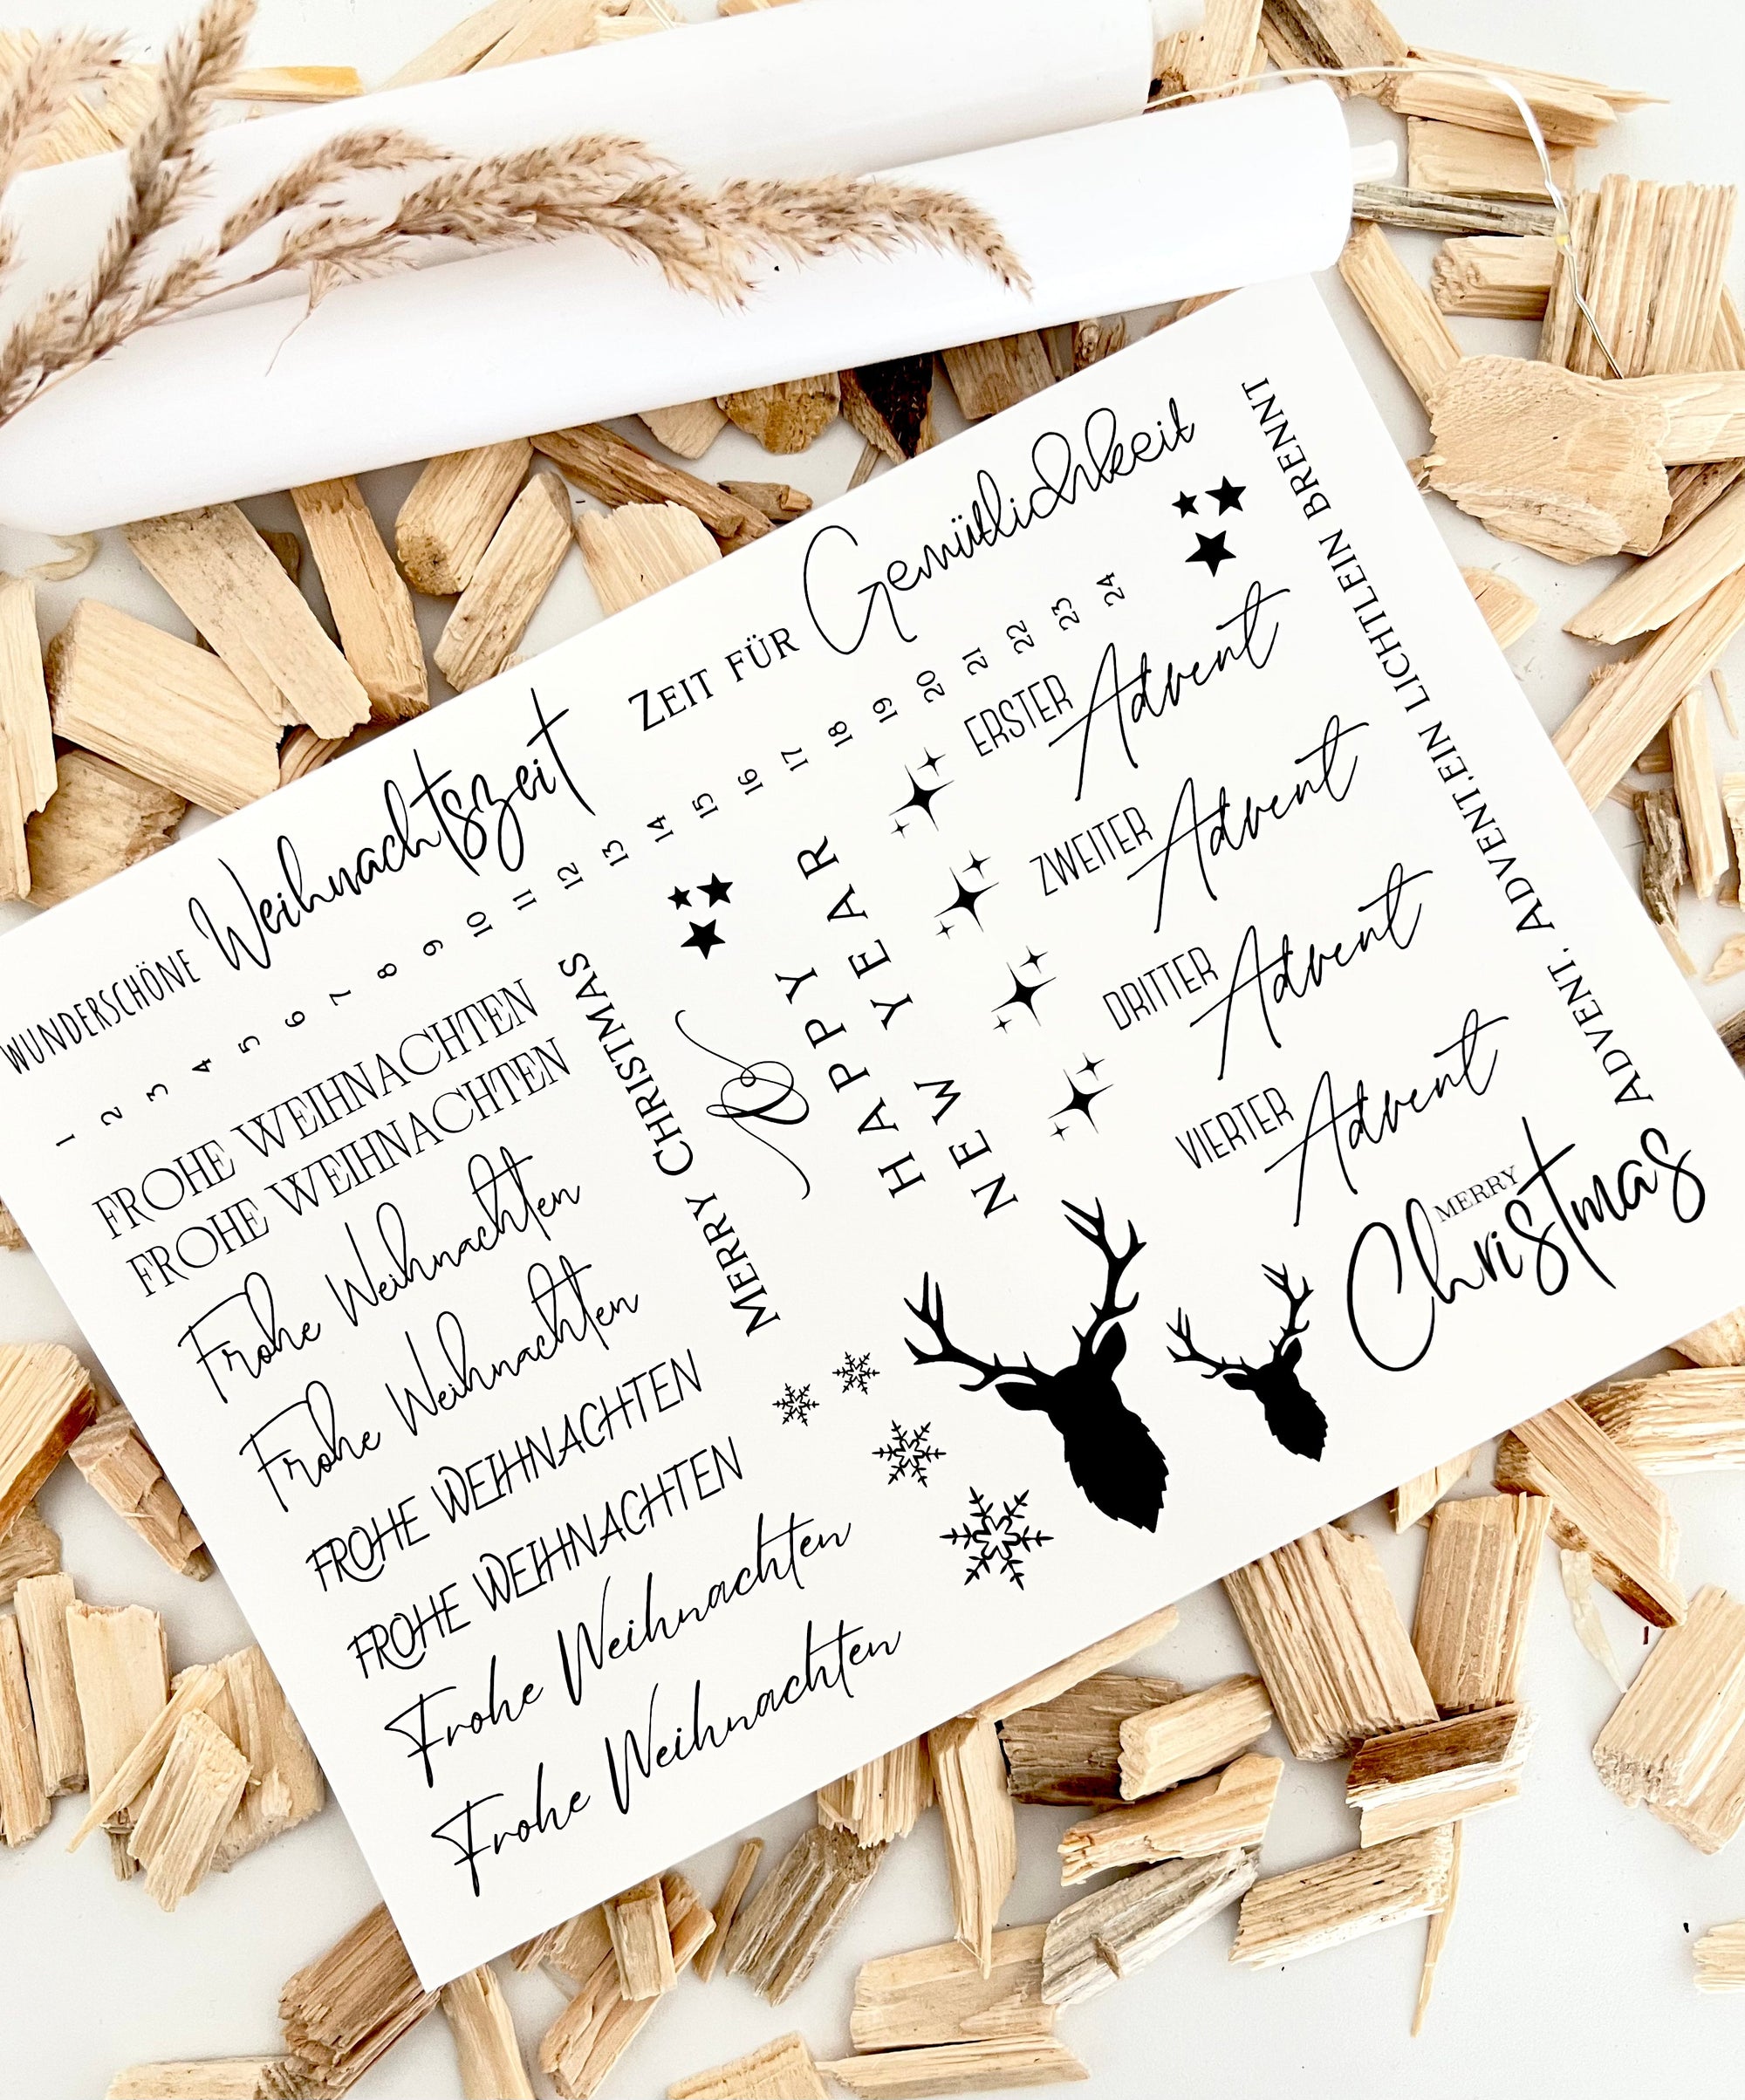 WUNDERSCHÖNE Weihnachtszeit
ZEIT FÜR Gemütlichkeit
1 2 3 4 5 6 7 8 9 10 11 12 13 14 15 16 17 18 19 20 21 22 23 24
FROHE WEIHNACHTEN
FROHE WEIHNACHTEN
Frohe Weihnachten
Frohe Weihnachten
FROHE WEIHNACHTEN
FROHE WEIHNACHTEN
Frohe Weihnachten
Frohe Weihnachten
MERRY CHRISTMAS
&
HAPPY YEAR
NEW
ERSTER Advent
ZWEITER Advent
DRITTER Advent
VIERTER Advent
ADVENT, ADVENT.EIN LICHTLEIN BRENNT
MERRY
Christmas